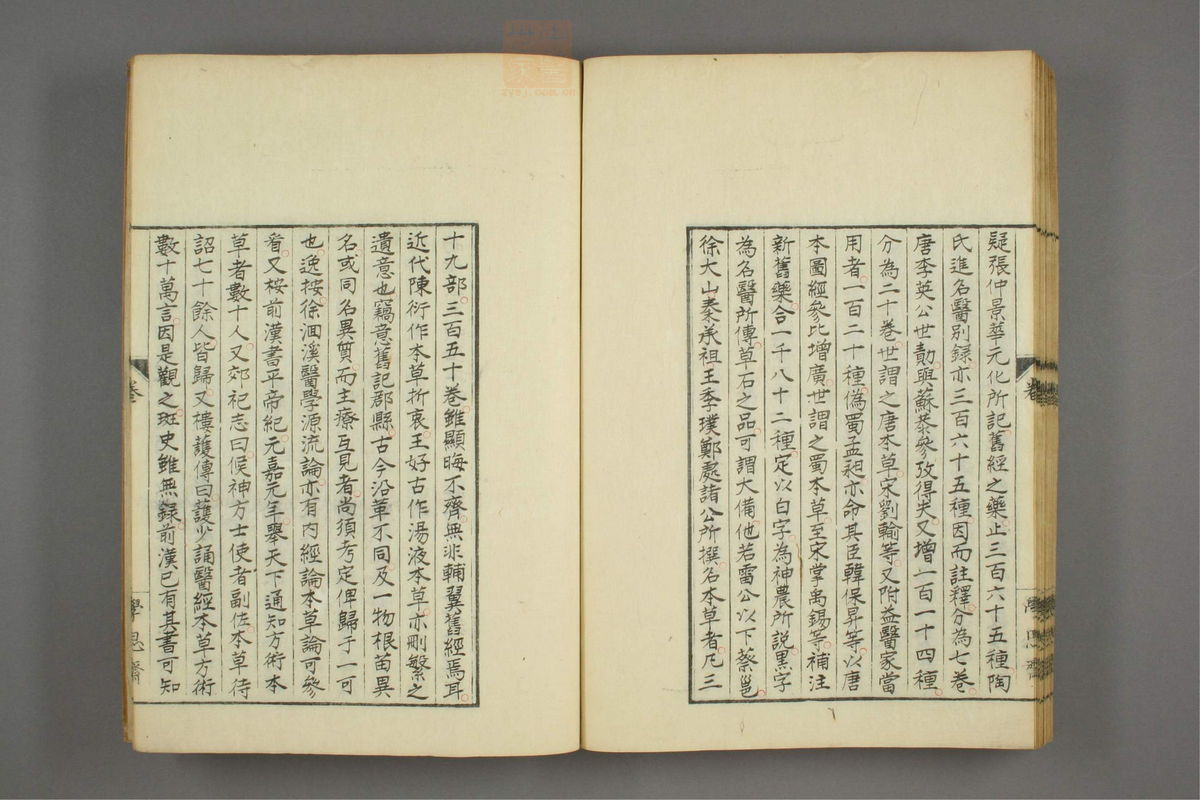 疑張仲景華元化所記舊經之藥止三百六十五種陶
氏進名醫別録亦三百六十五種因而註釋分為七卷
唐李英公世勣與蘇恭參攷得失又增一百一十四種
分為二十卷世謂之唐本草宋劉翰等又附益醫家當
用者一百二十種偽蜀孟昶亦命其臣韓保昇等以唐
本圖經參比增廣世謂之蜀本草至宋掌禹錫等補注
新舊藥合一千八十二種定以白字為神農所説黒字
為名醫所傳草石之品可謂大備他若雷公以下蔡邕
徐大山秦承祖王季璞鄭處諸公所撰名本草者凡三
十九部三百五十卷雖顯晦不齊無非輔翼舊經焉耳
近代陳衍作本草折衷王好古作湯液本草亦刪繁之
遺意也竊意舊記郡縣古今沿革不同及一物根苗異
名或同名異質而主療互見者尚須考定俾歸于一可
也逸按徐洄溪醫學源流論亦有内經論本草論可參
看又桉前漢書平帝紀元嘉元年舉天下通知方術本
草者數十人又郊祀志曰候神方士使者副佐本草待
詔七十餘人皆歸又樓護傳曰護少誦醫經本草方術
數十萬言因是觀之班史雖無録前漢已有其書可知
卷
學思齋
zysj.com.cn